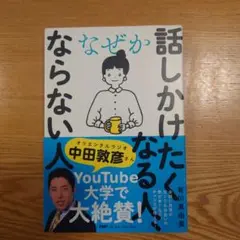 なぜか
話しかけたくなる人、
ならない人
オリエンタルラジオ
中田敦彦さん
YouTube
大学で
大絶賛!